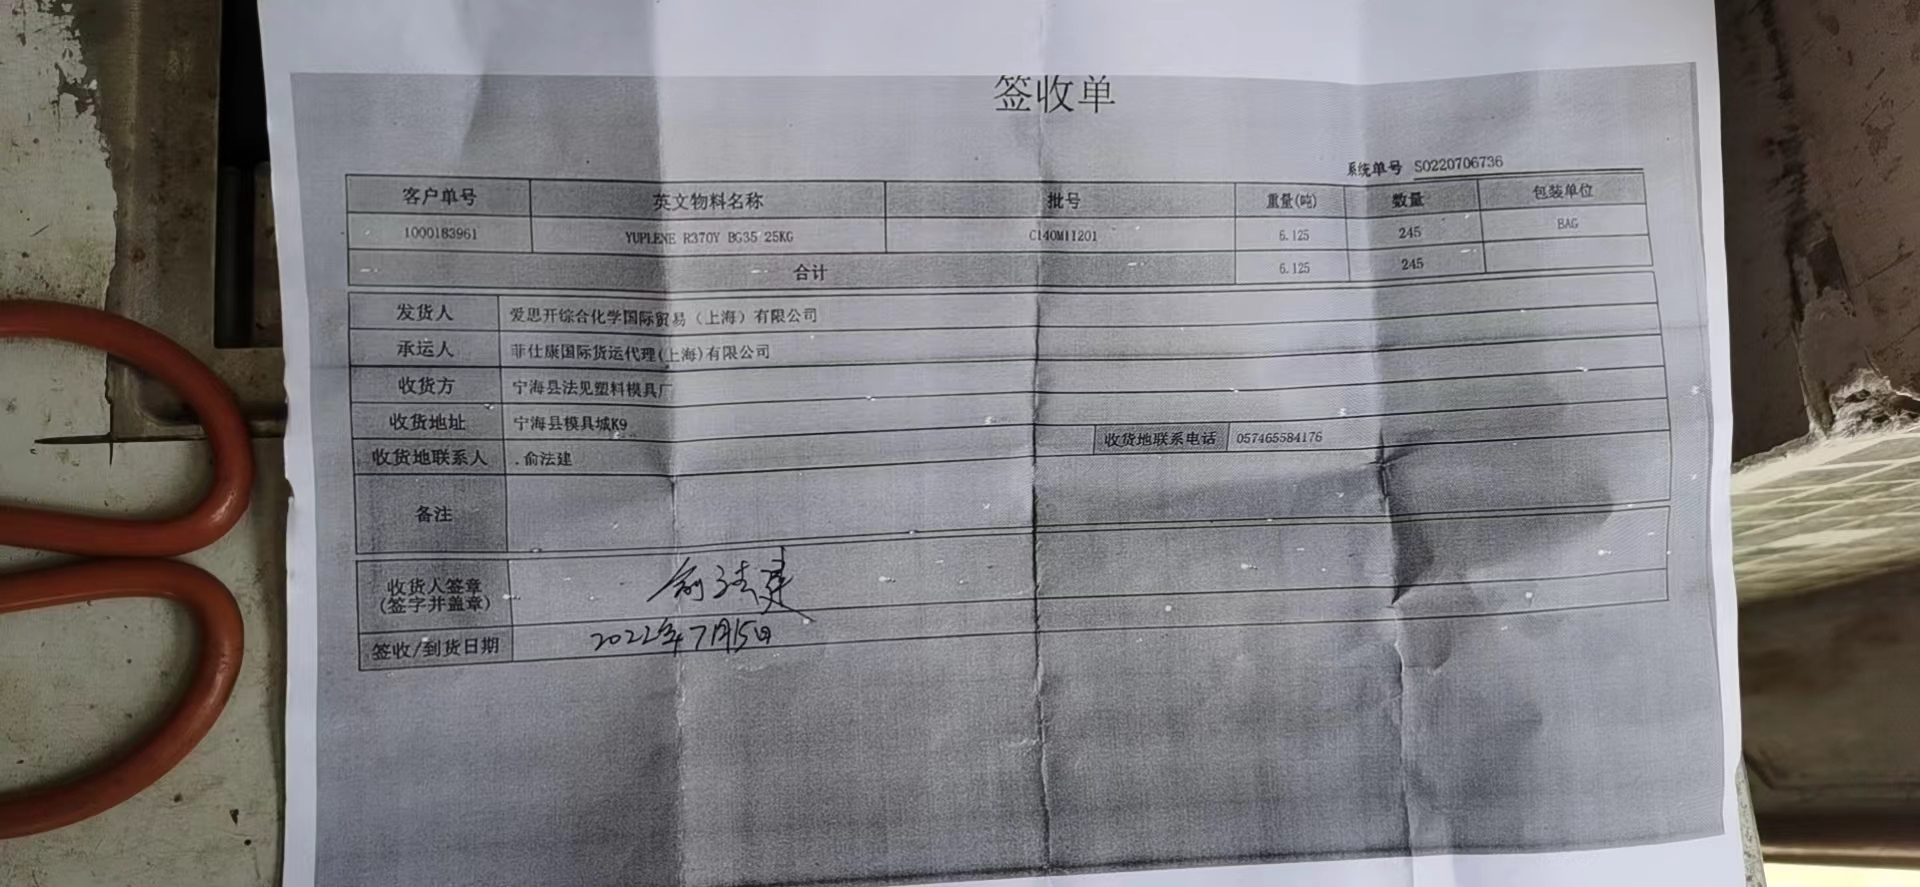 签收单
系统单号 SO220706736
客户单号 英文物料名称 批号 重量(吨) 数量 包装单位
1000183961 YUPLENE R370Y BG35 25KG C140M11201 6.125 245 BAG
合计 6.125 245
发货人 爱思开综合化学国际贸易(上海)有限公司
承运人 菲仕康国际货运代理(上海)有限公司
收货方 宁海县法见塑料模具厂
收货地址 宁海县模具城K9
收货地联系人 .俞法建 收货地联系电话 057465584176
备注
收货人签章 俞法建
(签字并盖章)
签收/到货日期 2022年7月15日